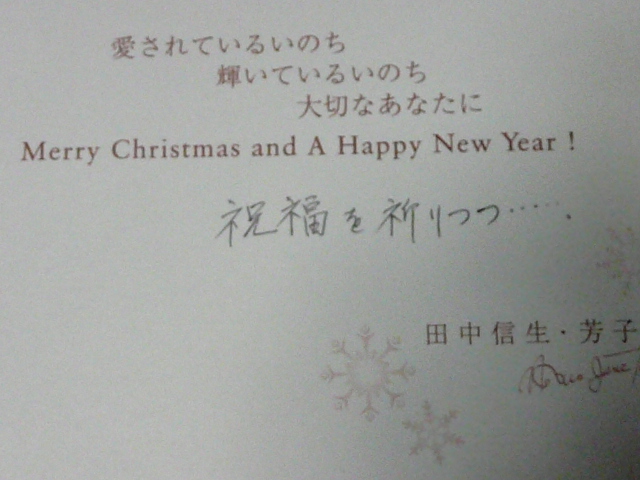 愛されているいのち
輝いているいのち
大切なあなたに
Merry Christmas and A Happy New Year !
祝福を祈りつつ‥‥‥
田中信生・芳子